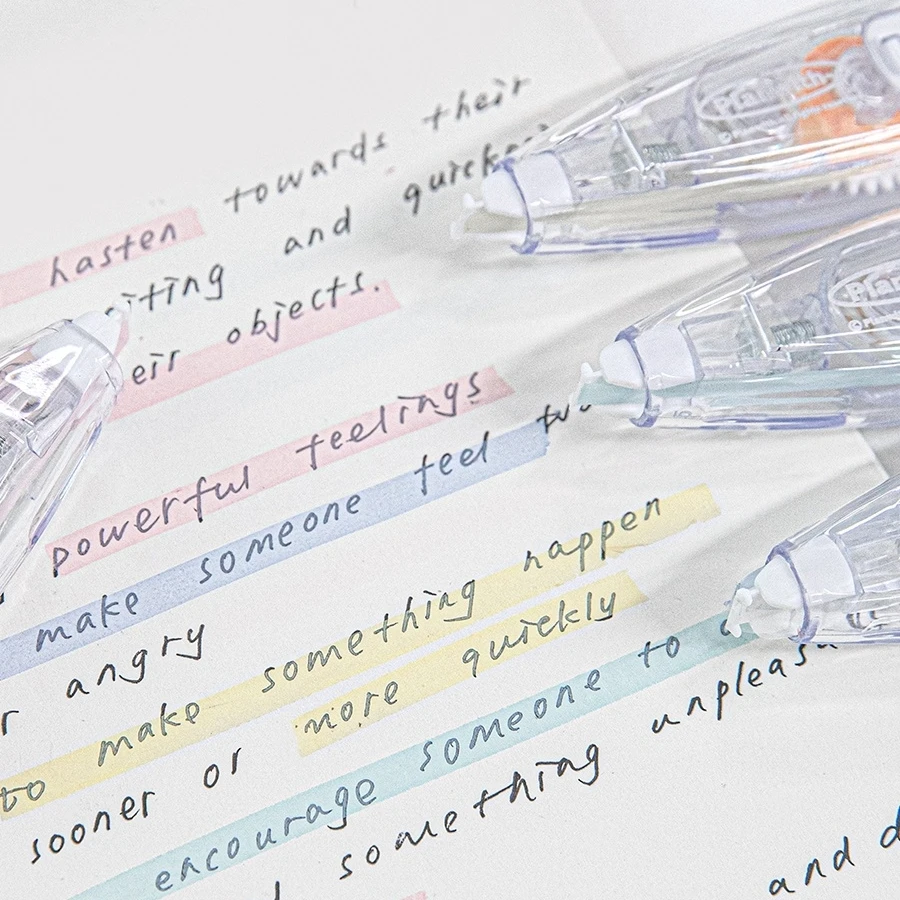 hasten towards their
iting and quickes
eir objects.
powerful feelings
make someone feel
r angry
to make something happen
more quickly
sooner or
encourage someone to
something unpleas
and d
Planeth
Plan